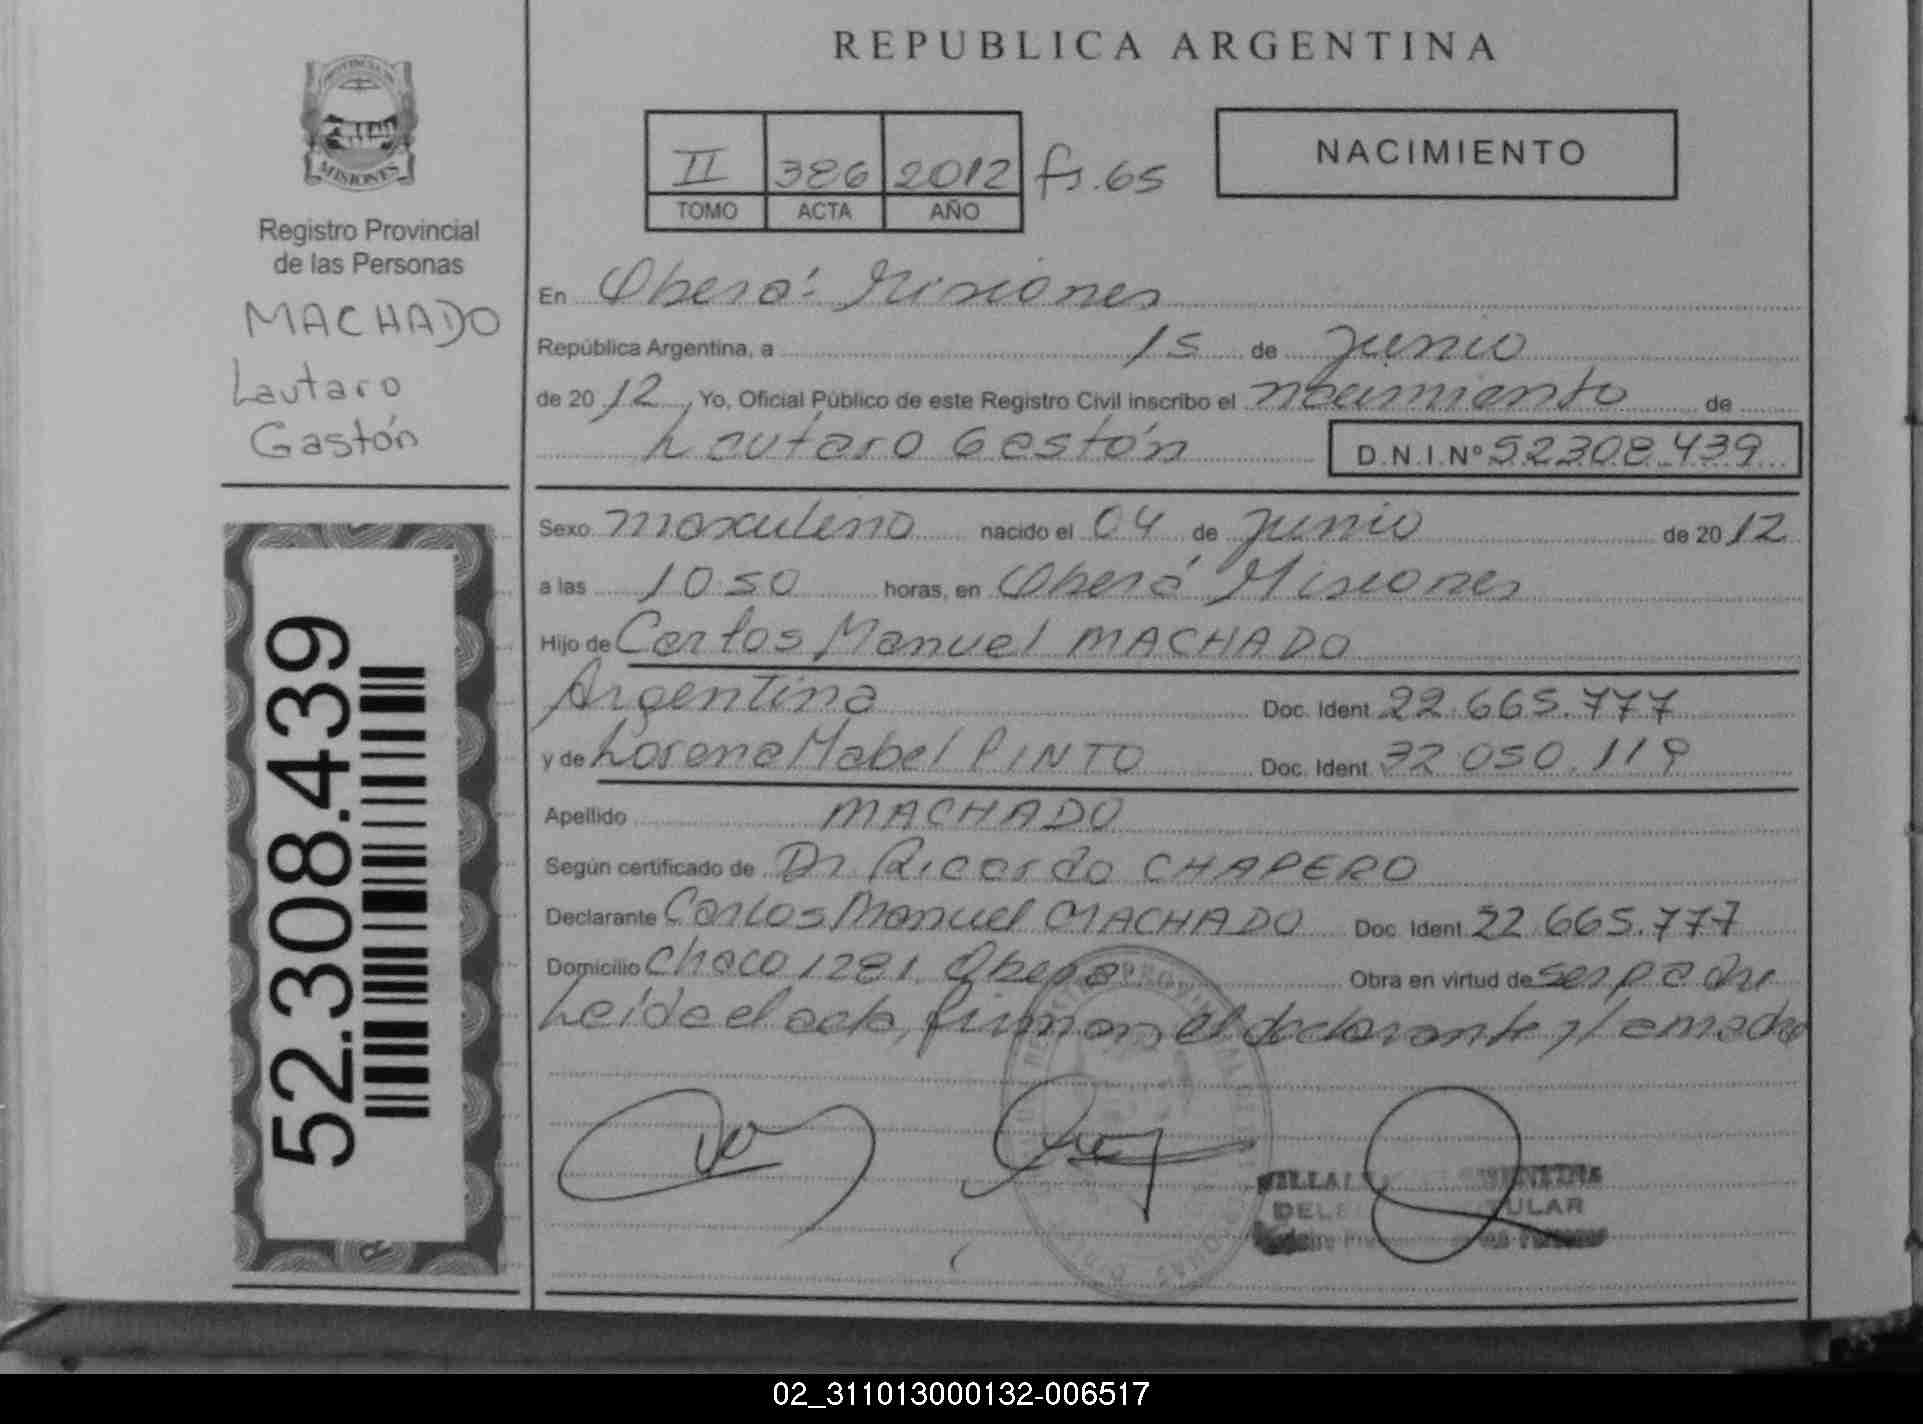 REPUBLICA ARGENTINA
PROVINCIA DE
MISIONES
Registro Provincial
de las Personas
MACHADO
Lautaro
Gastón
52.308.439
II 386 2012 fs.65
TOMO ACTA AÑO
NACIMIENTO
En Oberá: Misiones
República Argentina, a 15 de Junio
de 2012, Yo, Oficial Público de este Registro Civil inscribo el nacimiento de
Lautaro Gastón D.N.I.Nº 52308.439
Sexo masculino nacido el 04 de Junio de 2012
a las 10 50 horas, en Oberá Misiones
Hijo de Carlos Manuel MACHADO
Argentina Doc. Ident 22.665.777
y de Lorena Mabel PINTO Doc. Ident 32 050.119
Apellido MACHADO
Según certificado de Dr Ricardo CHAPERO
Declarante Carlos Manuel MACHADO Doc. Ident 22.665.777
Domicilio Chaco 1281 Oberá Obra en virtud de ser padre
Leída el acta, firman el declarante y la madre
02_311013000132-006517